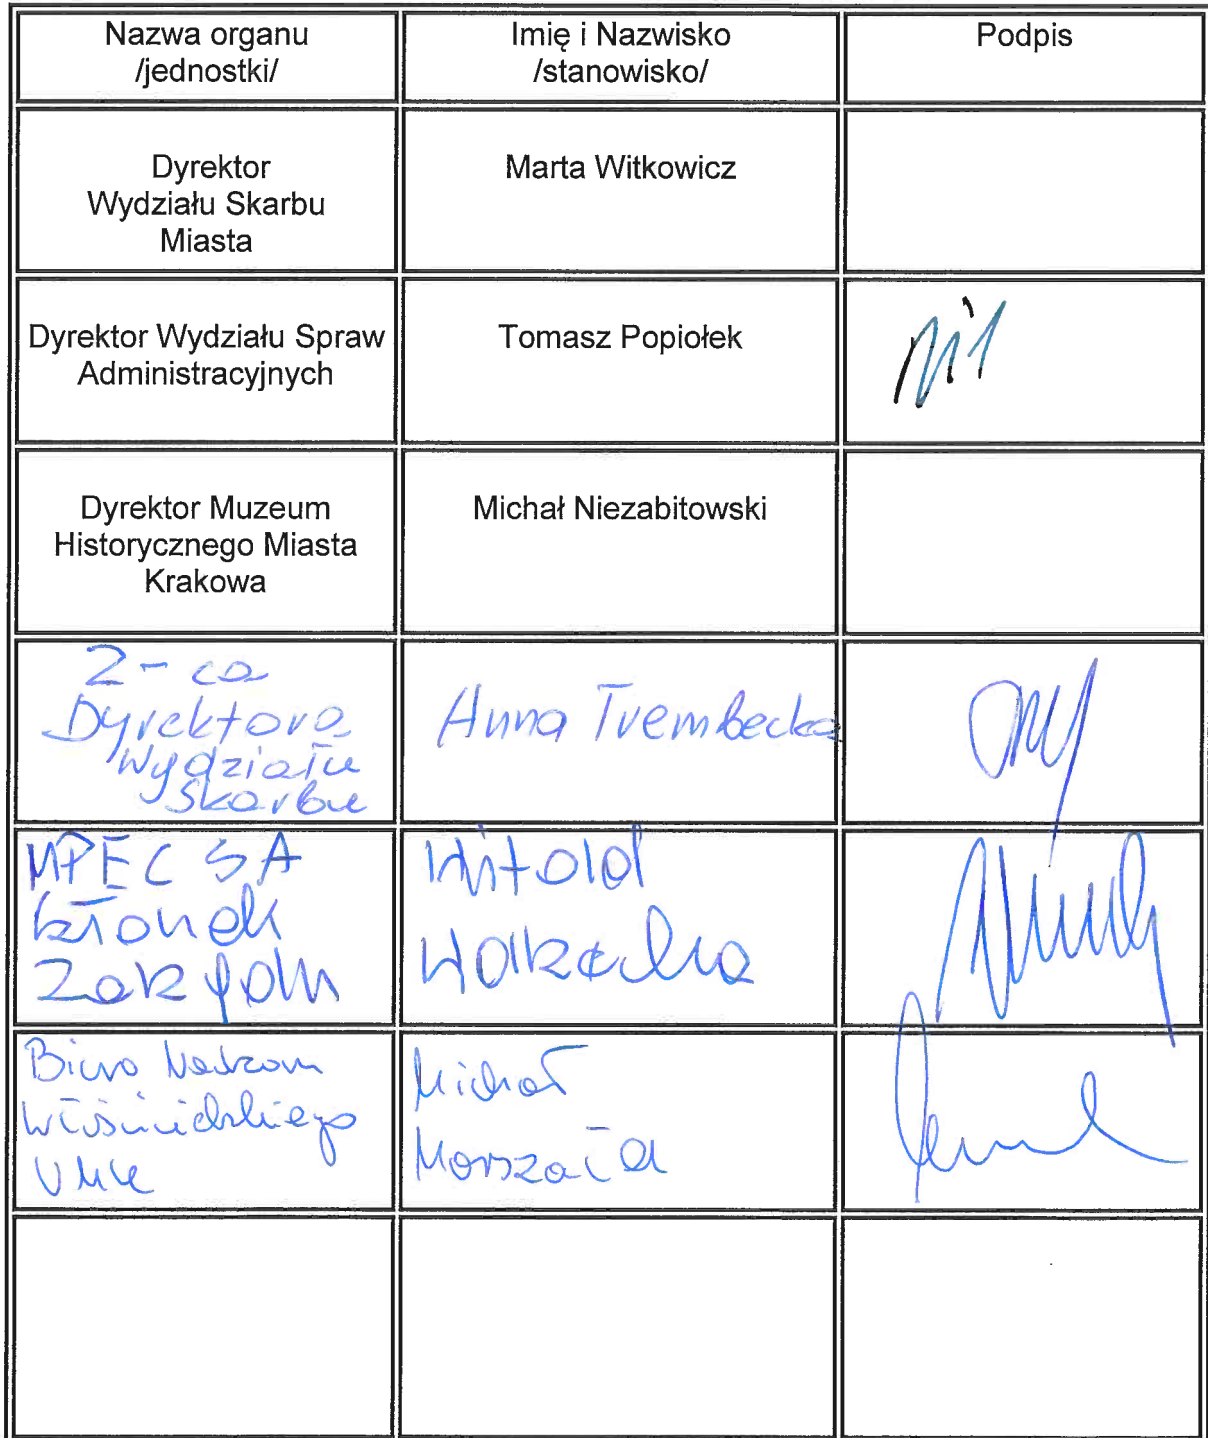 Nazwa organu
/jednostki/
Imię i Nazwisko
/stanowisko/
Podpis
Dyrektor
Wydziału Skarbu
Miasta
Marta Witkowicz
Dyrektor Wydziału Spraw
Administracyjnych
Tomasz Popiołek
Dyrektor Muzeum
Historycznego Miasta
Krakowa
Michał Niezabitowski
Z-ca
Dyrektora
Wydziału
Skarbu
Anna Trembecka
MPEC SA
Członek
Zarządu
Witold
Biuro Nadzoru
Właścicielskiego
UMK
Michał
Marszałek